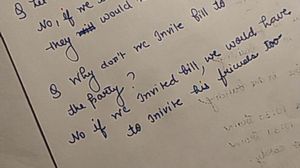 No, if we
they would
Why don't we invite bill to
the party?
No if we invited bill, we would have
to invite his friends too